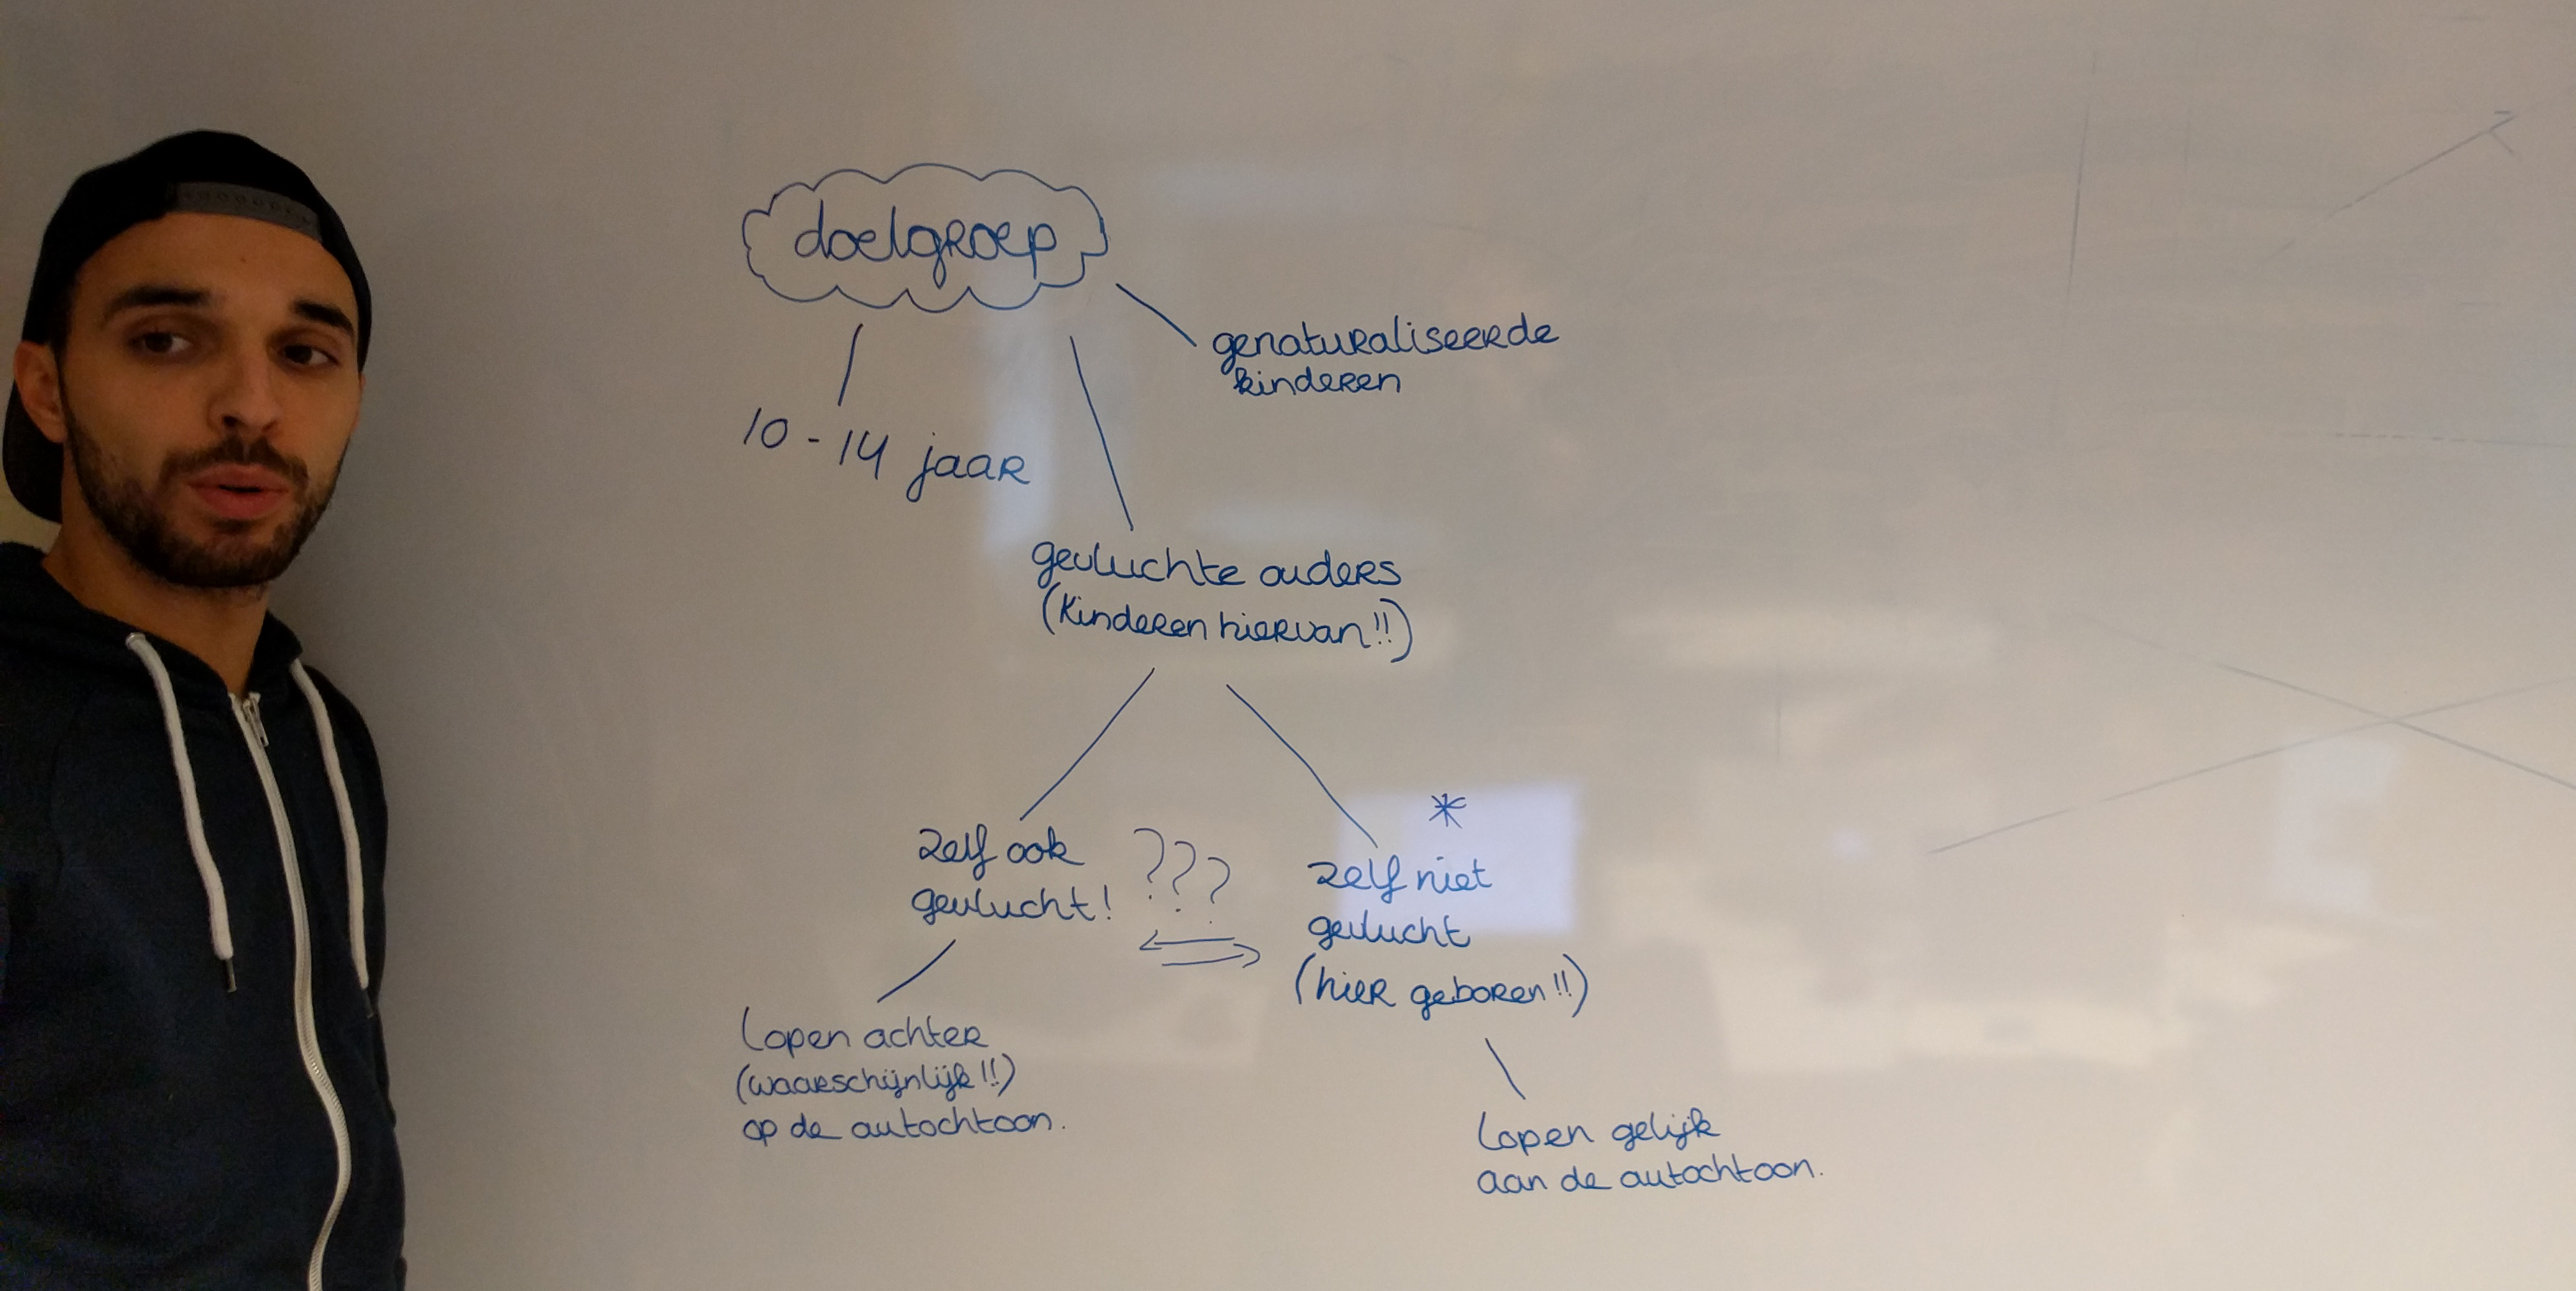 doelgroep
genaturaliseerde
kinderen
10 - 14 jaar
gevluchte ouders
(kinderen hiervan!!)
zelf ook
gevlucht!
???
*
zelf niet
gevlucht
(hier geboren!!)
lopen achter
(waarschijnlijk!!)
op de autochtoon.
lopen gelijk
aan de autochtoon.